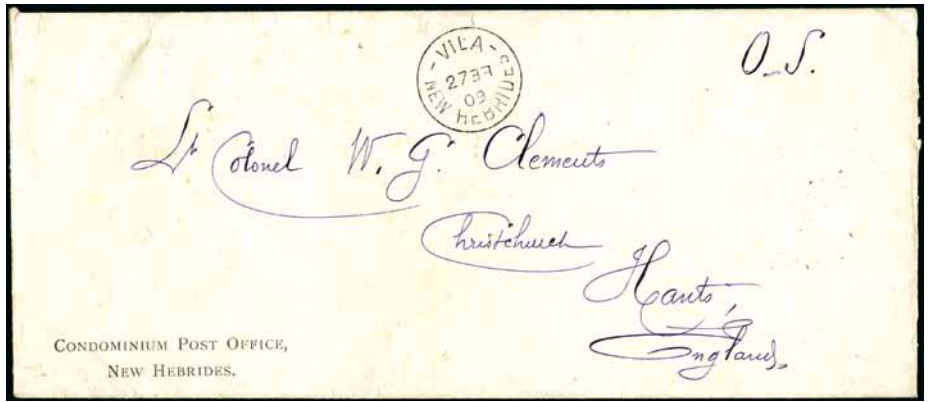 O.S.
- VILA -
27 3
09
NEW HEBRIDES
Lt Colonel W. G. Clements
Christchurch
Hants,
England.
CONDOMINIUM POST OFFICE,
NEW HEBRIDES.